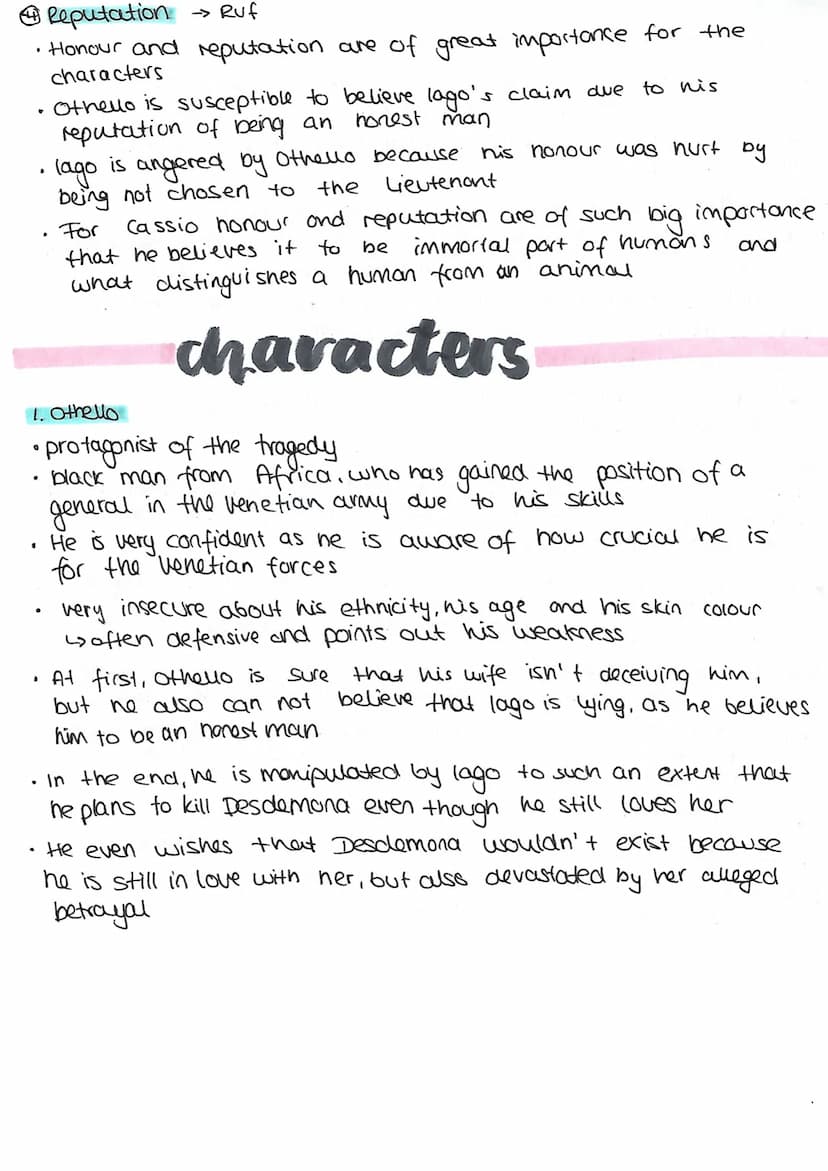 ④ Reputation → Ruf
• Honour and reputation are of great importance for the
characters
• Othello is susceptible to believe Iago's claim due to his
reputation of being an honest man
• Iago is angered by Othello because his honour was hurt by
being not chosen to the Lieutenant
• For Cassio honour and reputation are of such big importance
that he believes it to be immortal part of humans and
what distinguishes a human from an animal
characters
1. Othello
• protagonist of the tragedy
• black man from Africa, who has gained the position of a
general in the Venetian army due to his skills
• He is very confident as he is aware of how crucial he is
for the Venetian forces
• very insecure about his ethnicity, his age and his skin colour
↳ often defensive and points out his weakness
• At first, Othello is sure that his wife isn't deceiving him,
but he also can not believe that Iago is lying, as he believes
him to be an honest man
• In the end, he is manipulated by Iago to such an extent that
he plans to kill Desdemona even though he still loves her
• He even wishes that Desdemona wouldn't exist because
he is still in love with her, but also devastated by her alleged
betrayal